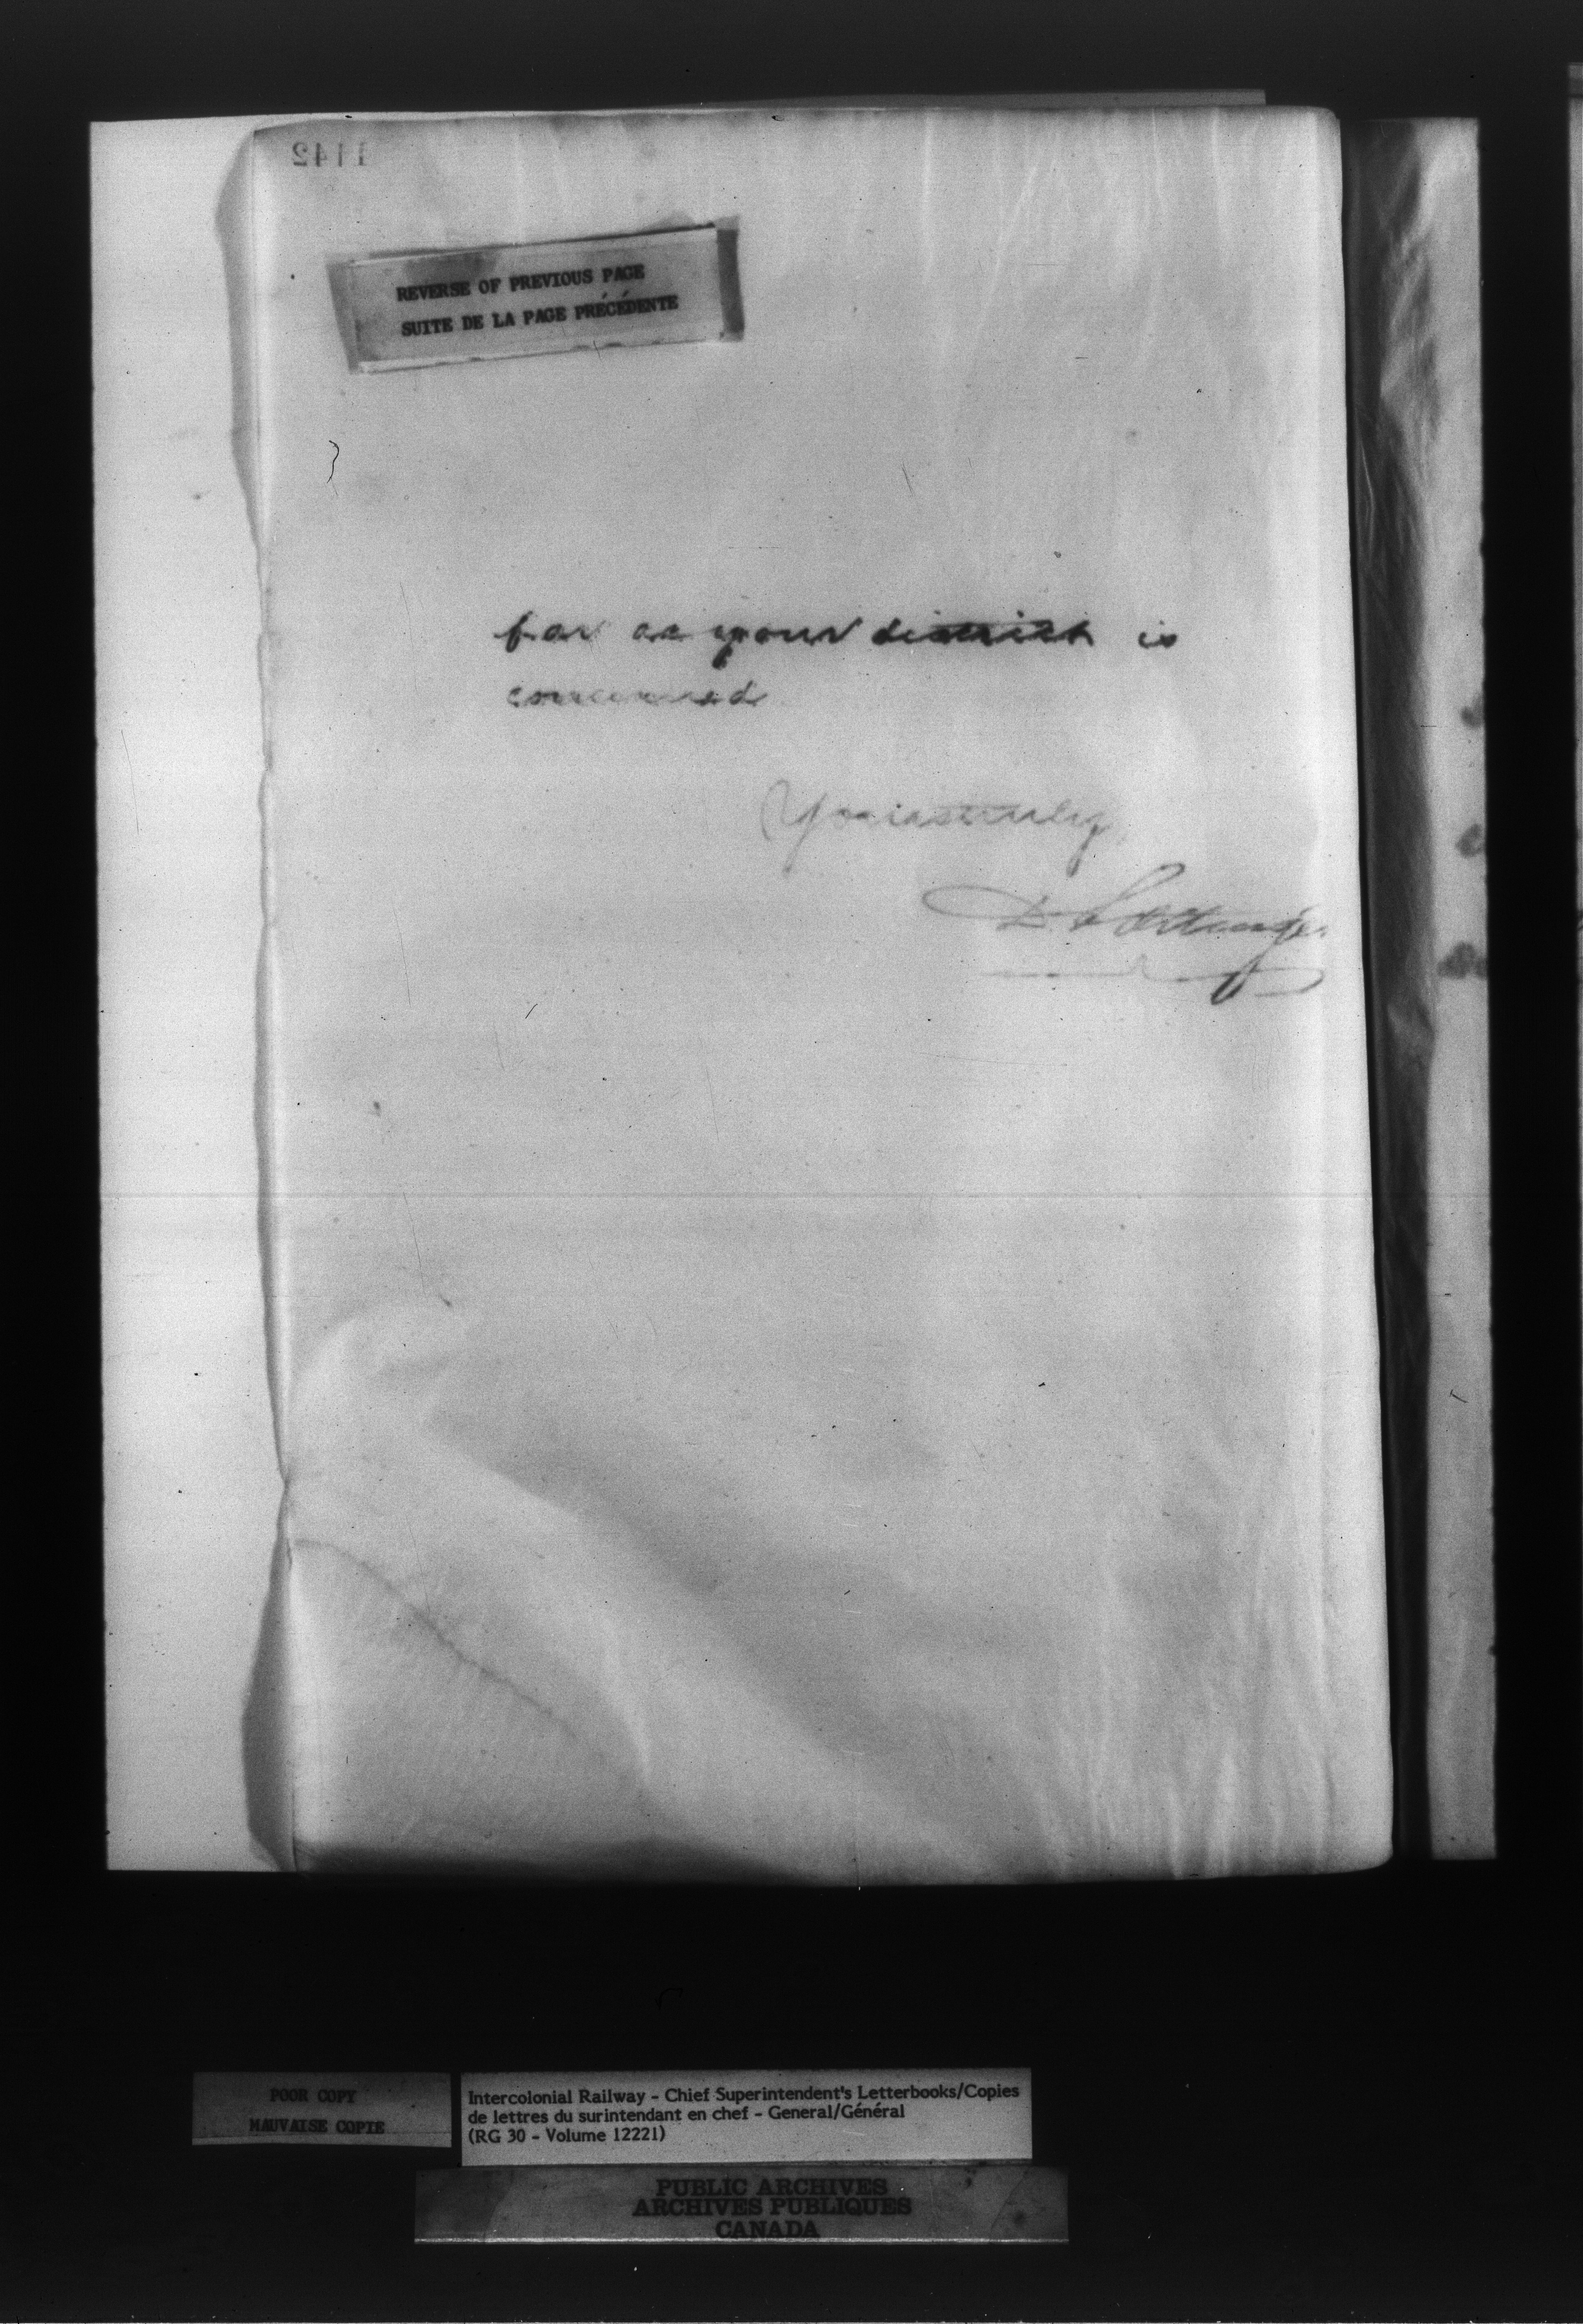 1142
REVERSE OF PREVIOUS PAGE
SUITE DE LA PAGE PRÉCÉDENTE
far as your district is
concerned
Yours truly
D. Pottinger
POOR COPY
MAUVAISE COPIE
Intercolonial Railway - Chief Superintendent's Letterbooks/Copies
de lettres du surintendant en chef - General/Général
(RG 30 - Volume 12221)
PUBLIC ARCHIVES
ARCHIVES PUBLIQUES
CANADA